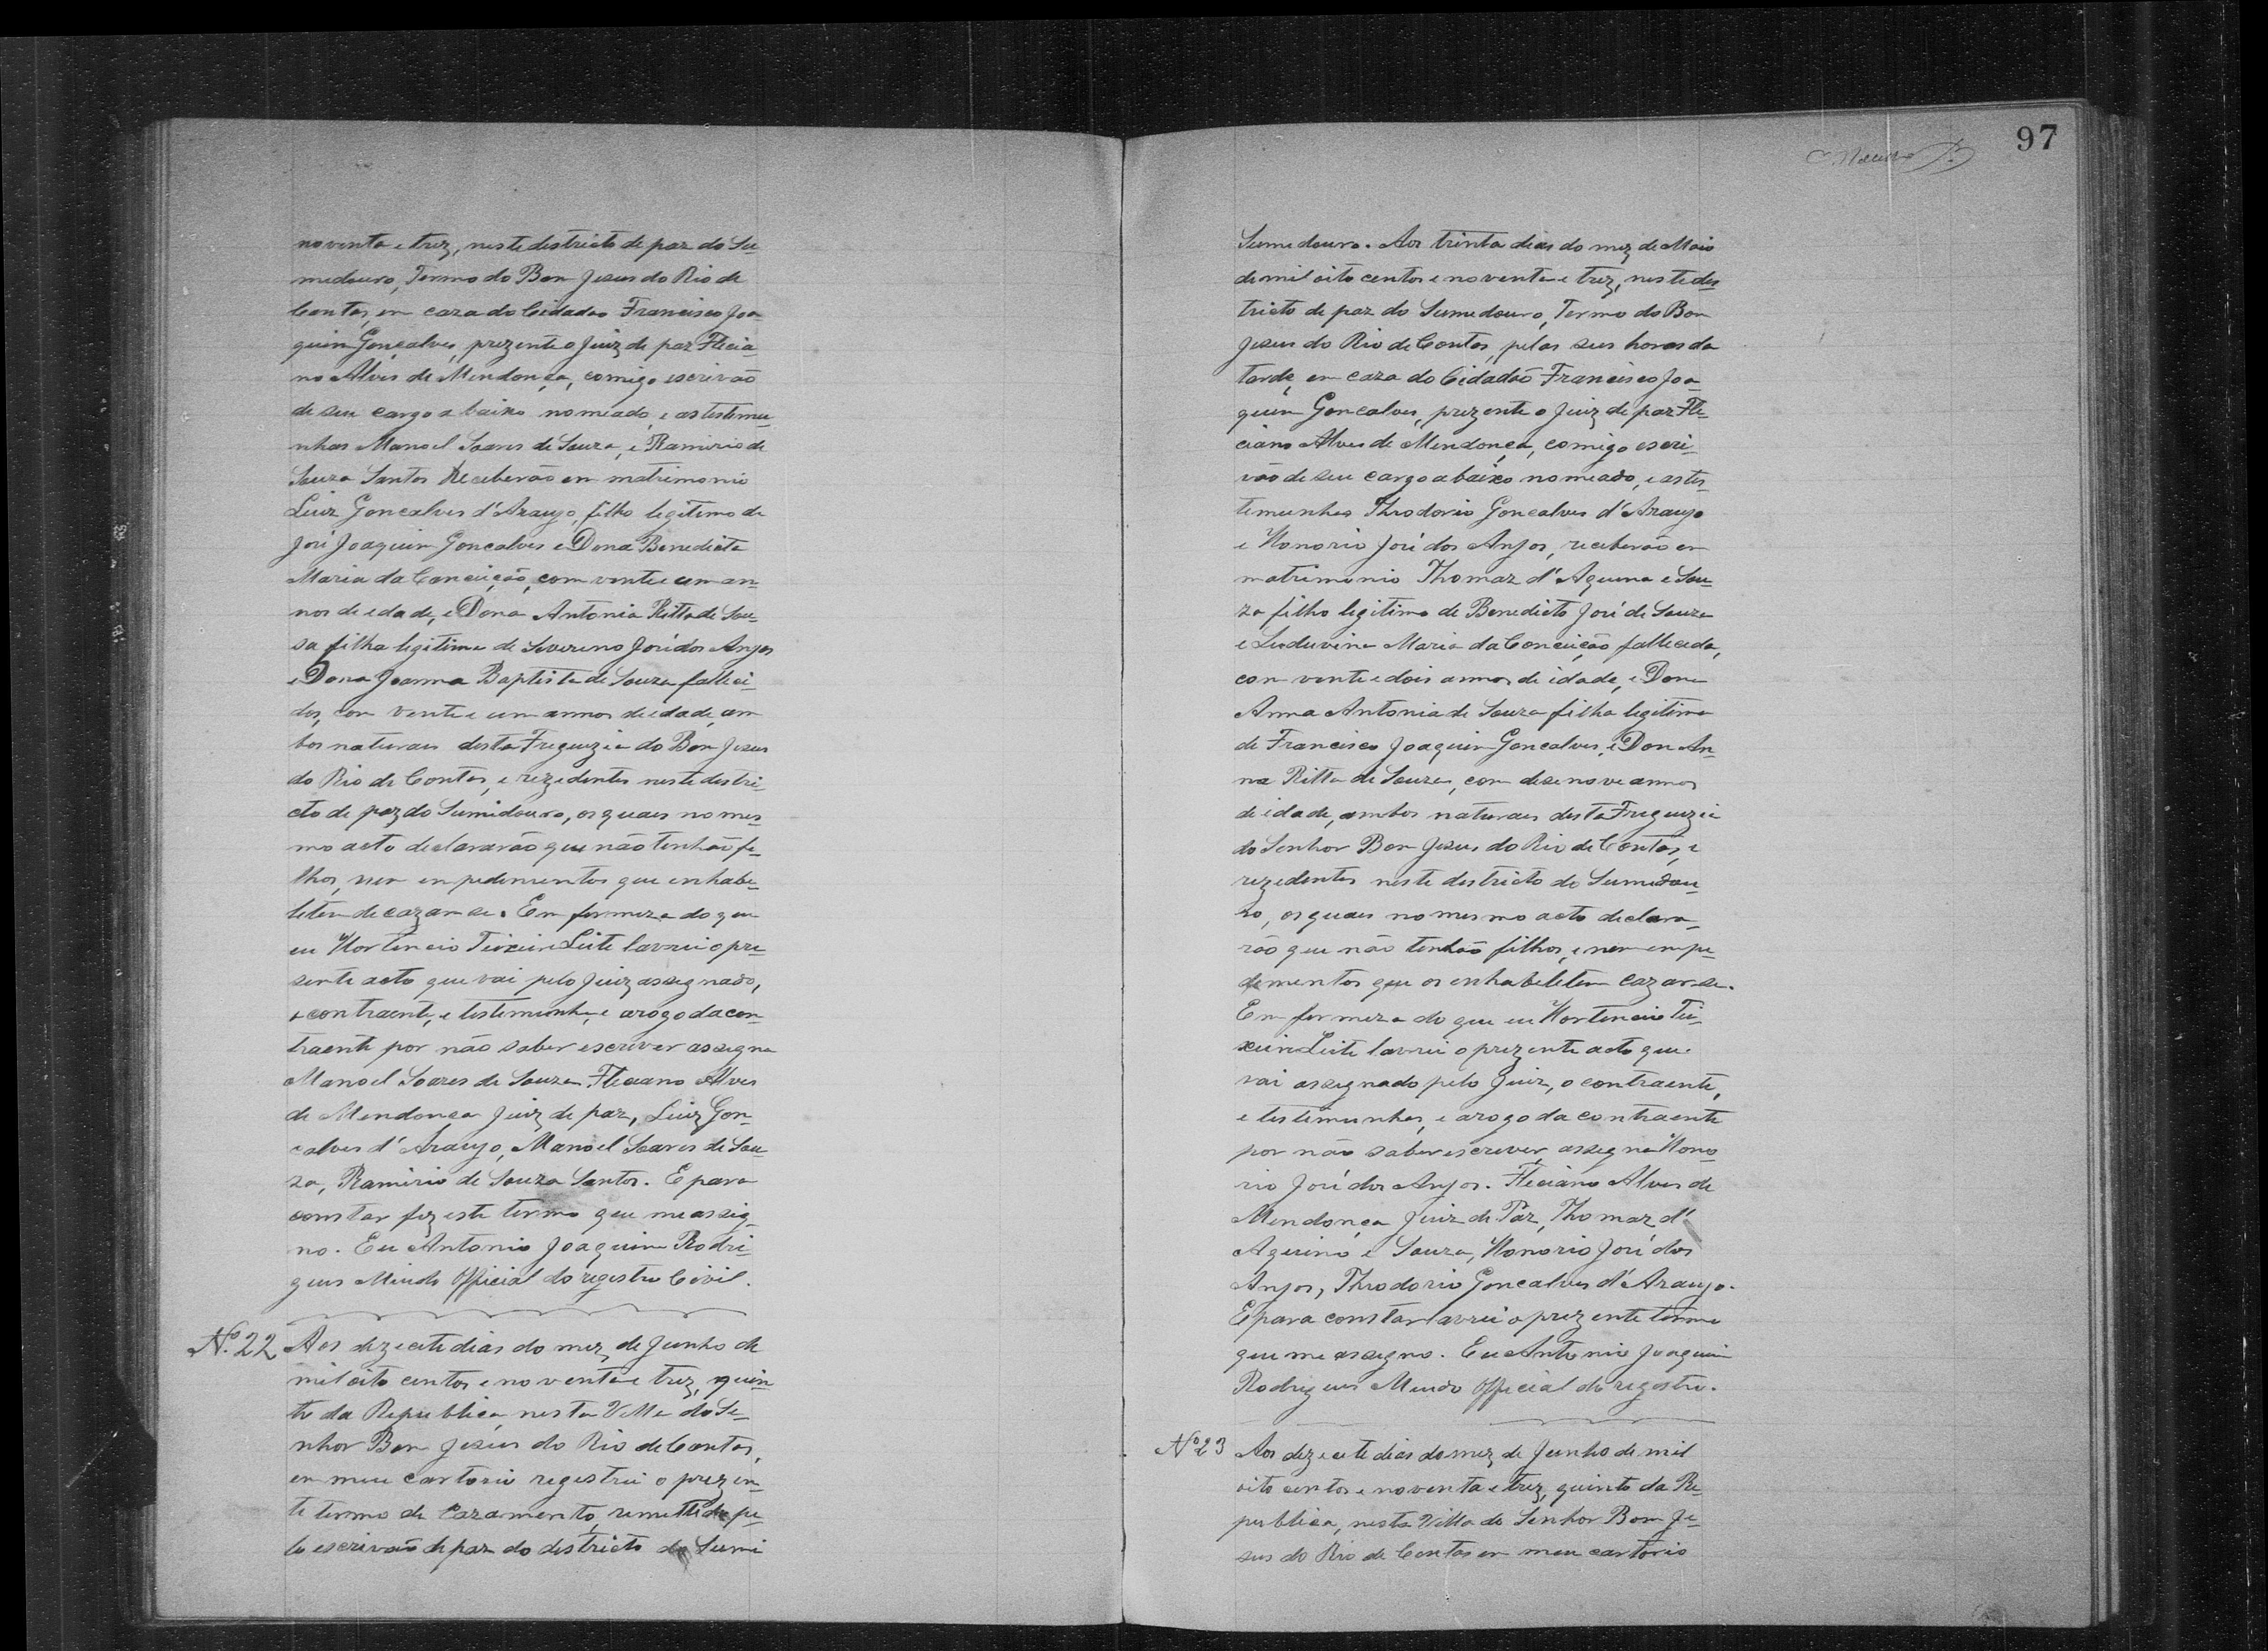 noventa e trez, neste destricto de paz do Su-
medouro, Termo do Bom Jesus do Rio de
Contas, em caza do Cidadao Francisco Joa
quim Gonçalves, prezente o Juiz de paz Flecia-
no Alves de Mendonça, comigo escrivaõ
de seu cargo abaixo nomeado, e as testemu-
nhas Manoel Soares de Souza, e Ramirio de
Souza Santos Receberaõ em matrimonio
Luiz Goncalves d'Araujo, filho legitimo de
José Joaquim Goncalves e Dona Benedicta
Maria da Conceição, com vente e um an-
nos de edade, e Dona Antonia Ritta de Sou-
sa filha legitima de Severeno José dos Anjos
e Dona Joanna Baptista de Souza falleci-
dos, com vente e um annos de edade, am
bos naturaes desta Freguezia do Bom Jesus
do Rio de Contas, e rezedentes neste destri-
cto de paz do Sumidouro, os quaes no mes-
mo acto declararaõ que não tenhaõ fe-
lhos, nem empedementos que enhabe-
letem de cazarse. Em fermeza do que
eu Hortencio Teixeira Leite lavrei o pre-
sente acto que vai pelo Juiz assegnado,
o contraente, e testemunhas, e arogo da con-
traente por não saber escrever assegna
Manoel Soares de Souza. Fleciano Alves
de Mendonca Juiz de paz, Luiz Gon-
calves d'Araujo, Manoel Soares de Sou-
za, Ramirio de Souza Santos. E para
constar fez este termo que me assig-
no. Eu Antonio Joaquim Rodri-
gues Mindo Official do registro Civil.
Nº 22 Aos dezecete dias do mez de Junho de
mil oito centos e noventa e trez, quin-
to da Republica, nesta Villa do Se-
nhor Bom Jesus do Rio de Contas,
em meu cartorio registrei o prezen-
te termo de Cazamento, remettido pe-
lo escrivaõ de paz do destricto do Sumi
97
Sumedouro. Aos trinta dias do mez de Maio
de mil oito centos e noventa e trez, neste des
tricto de paz do Sumedouro, Termo do Bom
Jesus do Rio de Contas, pelas seis horas da
tarde, em caza do Cidadaõ Francisco Joa-
quim Goncalves, prezente o Juiz de paz Fle-
ciano Alves de Mendonça, comigo escri-
vão de seu cargo abaixo nomeado, e as tes-
temunhas Theodorio Goncalves d'Araujo
e Honorio José dos Anjos, receberaõ em
matrimonio Thomaz d'Aquina e Sou-
za filho legitimo de Benedicto José de Souza
e Luduvina Maria da Conceição fallecida,
com vente e dois annos de idade, e Dona
Anna Antonia de Souza filha legitima
de Francisco Joaquim Goncalves, e Don An-
na Ritta de Souza, com desenove annos
de idade, ambos naturaes desta Freguezia
do Senhor Bom Jesus do Rio de Contas, e
rezedentes neste destricto do Sumedou-
ro, os quaes no mesmo acto declara-
rão que não tenhaõ filhos, e nem empe-
dementos que os enhabeletem cazarse.
Em fermeza do que eu Hortencio Tei-
xeira Leite lavrei o prezente acto que
vai assegnado pelo Juiz, o contraente,
e testemunhas, e arogo da contraente
por não saber escrever, assegna Hono
rio José dos Anjos. Fleciano Alves de
Mendonça Juiz de Paz, Thomaz d'
Aquino e Souza, Honorio José dos
Anjos, Theodorio Goncalves d'Araujo.
E para constar lavrei o prezente termo
que me assegno. Eu Antonio Joaquim
Rodrigues Mindo Official do registro.
Nº 23 Aos dezecete dias do mez de Junho de mil
oito centos e noventa e trez, quinto da Re-
publica, nesta Villa do Senhor Bom Je-
sus do Rio de Contas em meu cartorio